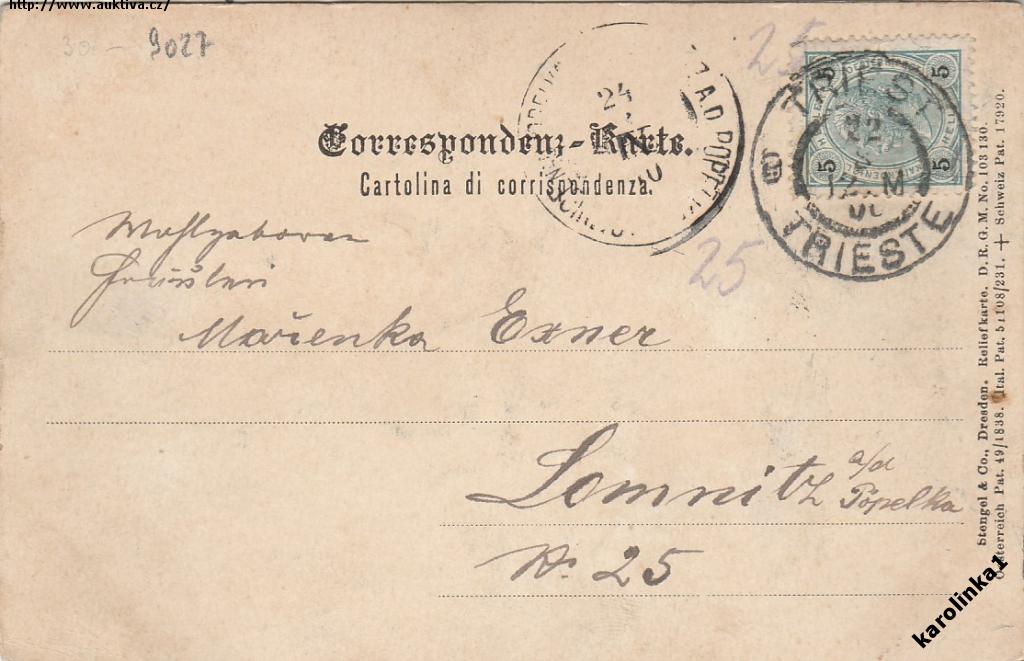 http://www.auktiva.cz/
30.- 9027
25
Correspondenz-Karte.
Cartolina di corrispondenza.
24
Z A.D POPELK
TRIEST
22
12 M
00
TRIESTE
5 5 5 5
Wohlgeboren
Fräulein
25
Mařenka Exner
Lomnitz a/d Popelka
Nr. 25
Stengel & Co., Dresden. Reliefkarte. D. R. G. M. No. 103 130.
Österreich Pat. 49/1838. Ital. Pat. 51108/231. + Schweiz Pat. 17920.
karolinka1